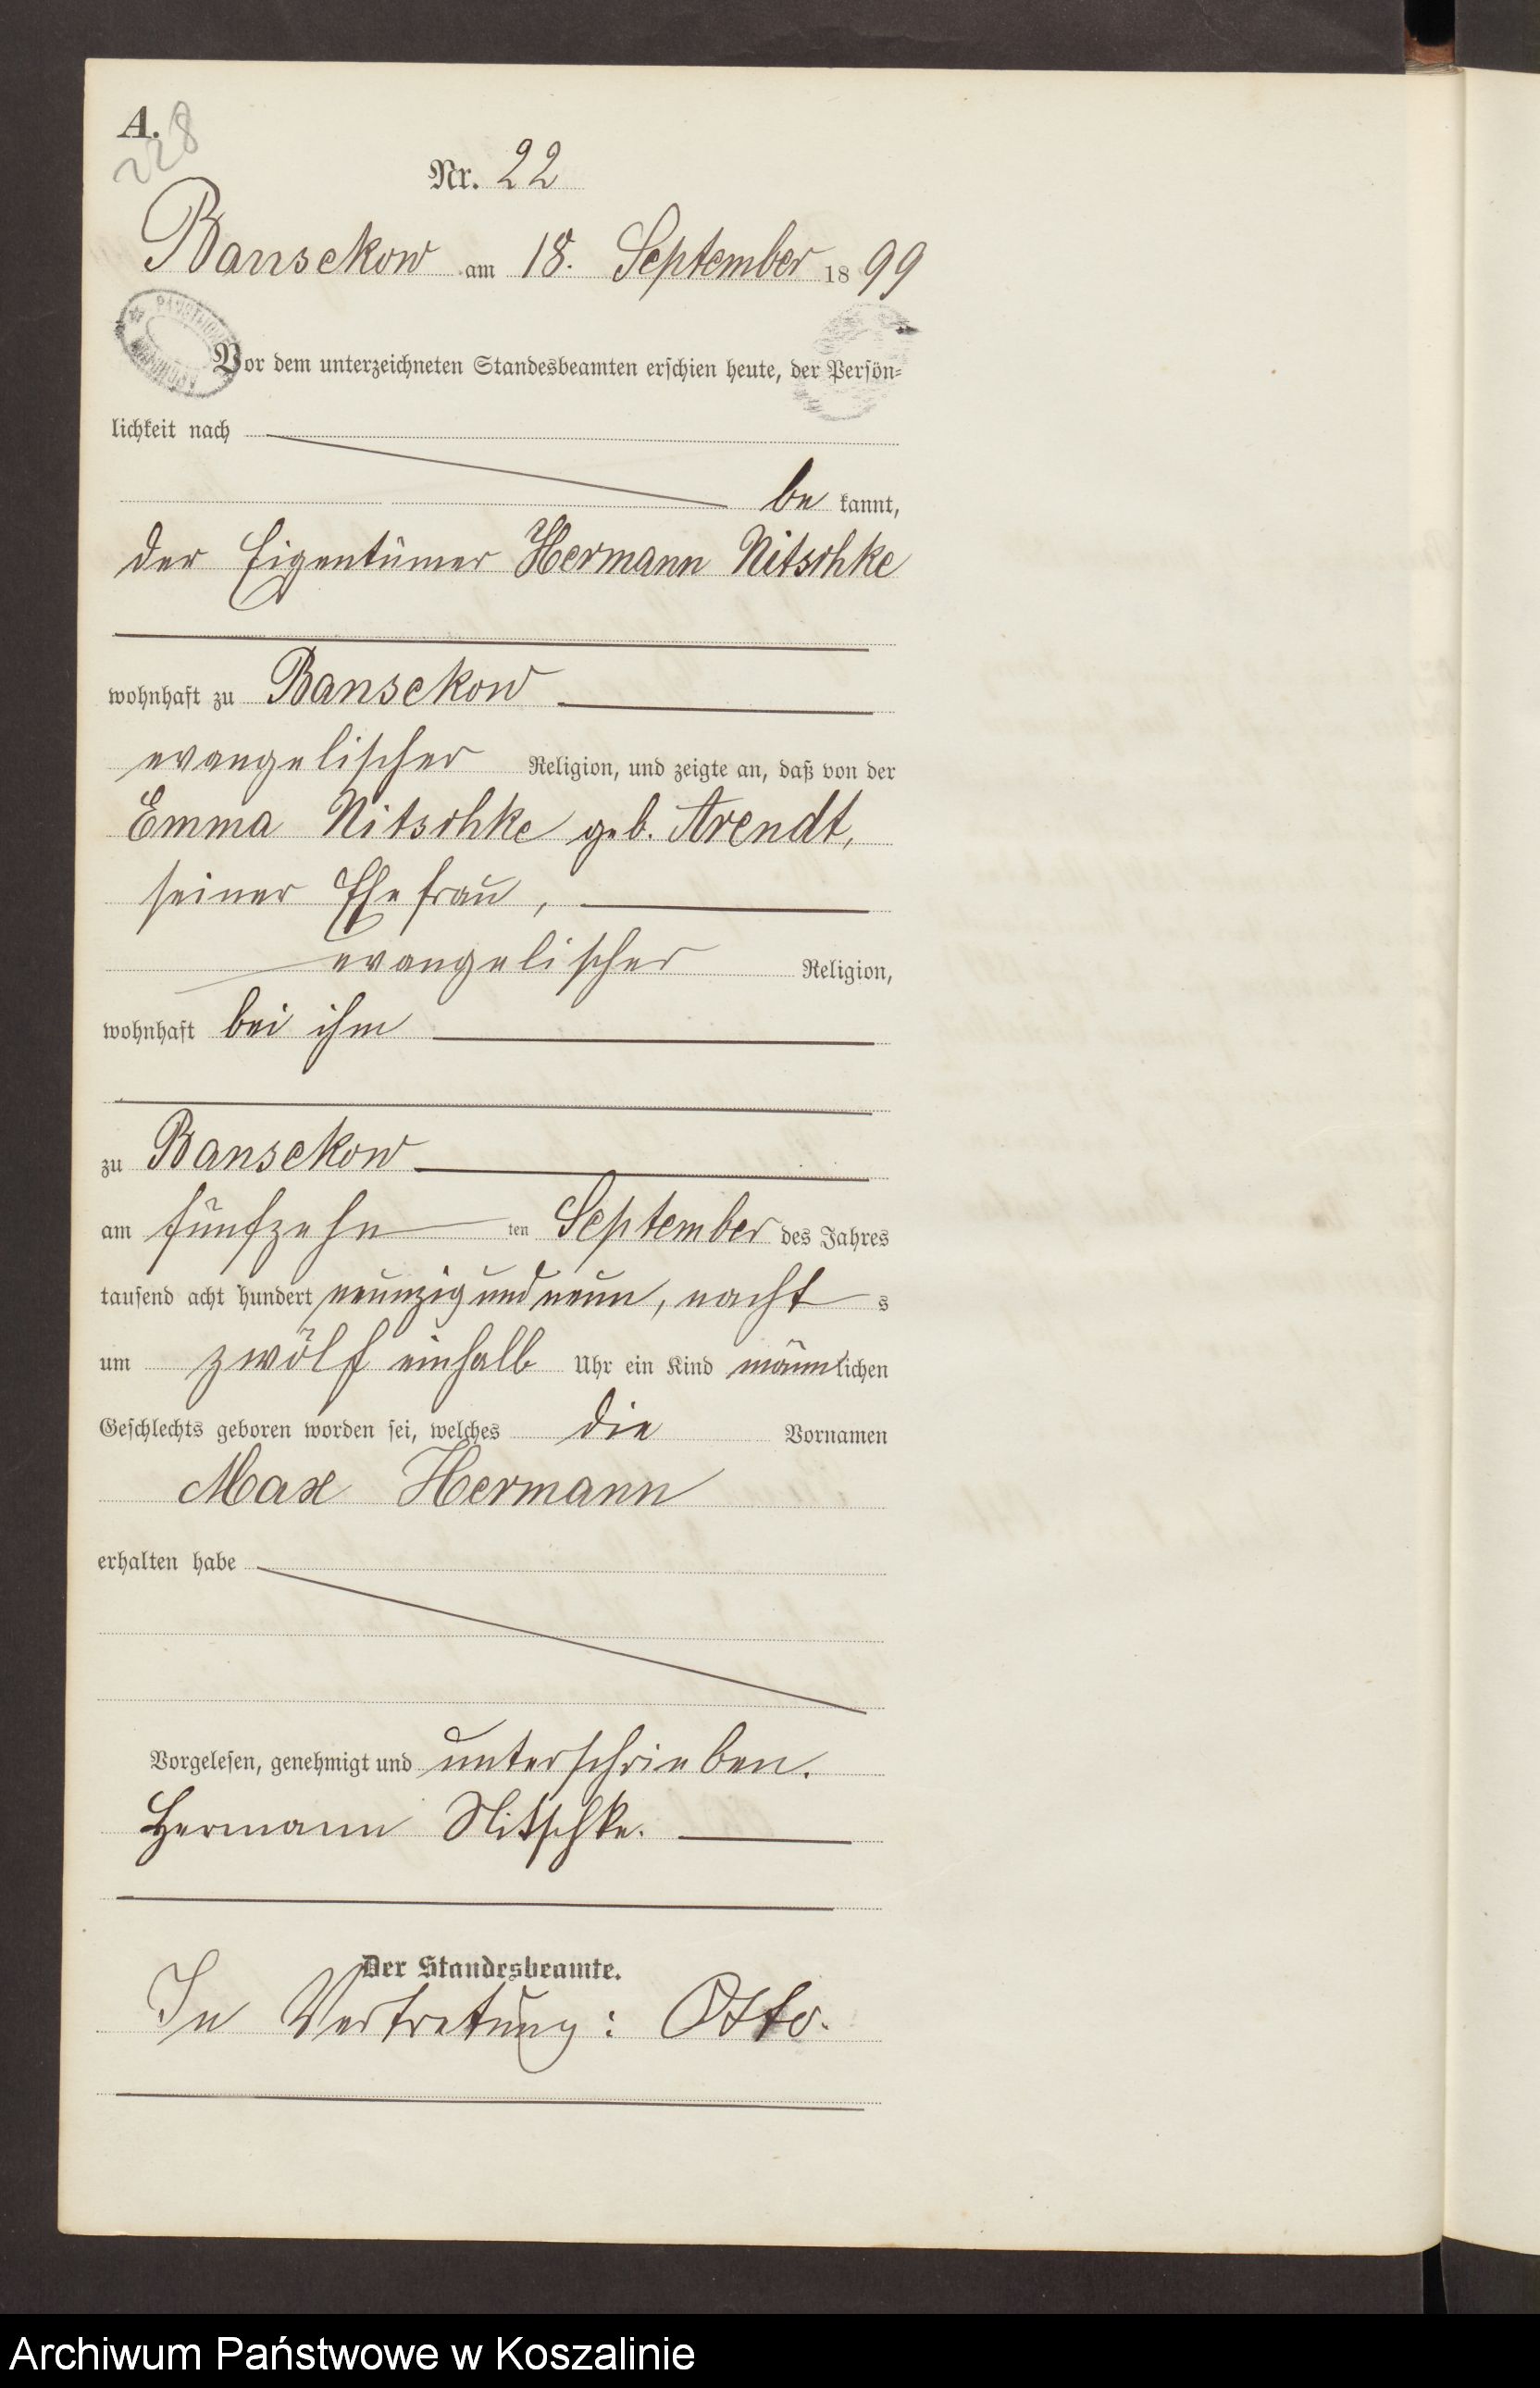 A.
228
Nr. 22
Bansekow am 18. September 1899
Vor dem unterzeichneten Standesbeamten erschien heute, der Persön-
lichkeit nach
be kannt,
der Eigentümer Hermann Nitschke
wohnhaft zu Bansekow
evangelischer Religion, und zeigte an, daß von der
Emma Nitschke geb. Arendt,
seiner Ehefrau,
evangelischer Religion,
wohnhaft bei ihm
zu Bansekow
am fünfzehn ten September des Jahres
tausend acht hundert neunzig und neun, nacht s
um zwölf einhalb Uhr ein Kind männlichen
Geschlechts geboren worden sei, welches die Vornamen
Max Hermann
erhalten habe
Vorgelesen, genehmigt und unterschrieben.
Hermann Nitschke.
Der Standesbeamte.
In Vertretung: Otto.
Archiwum Państwowe w Koszalinie